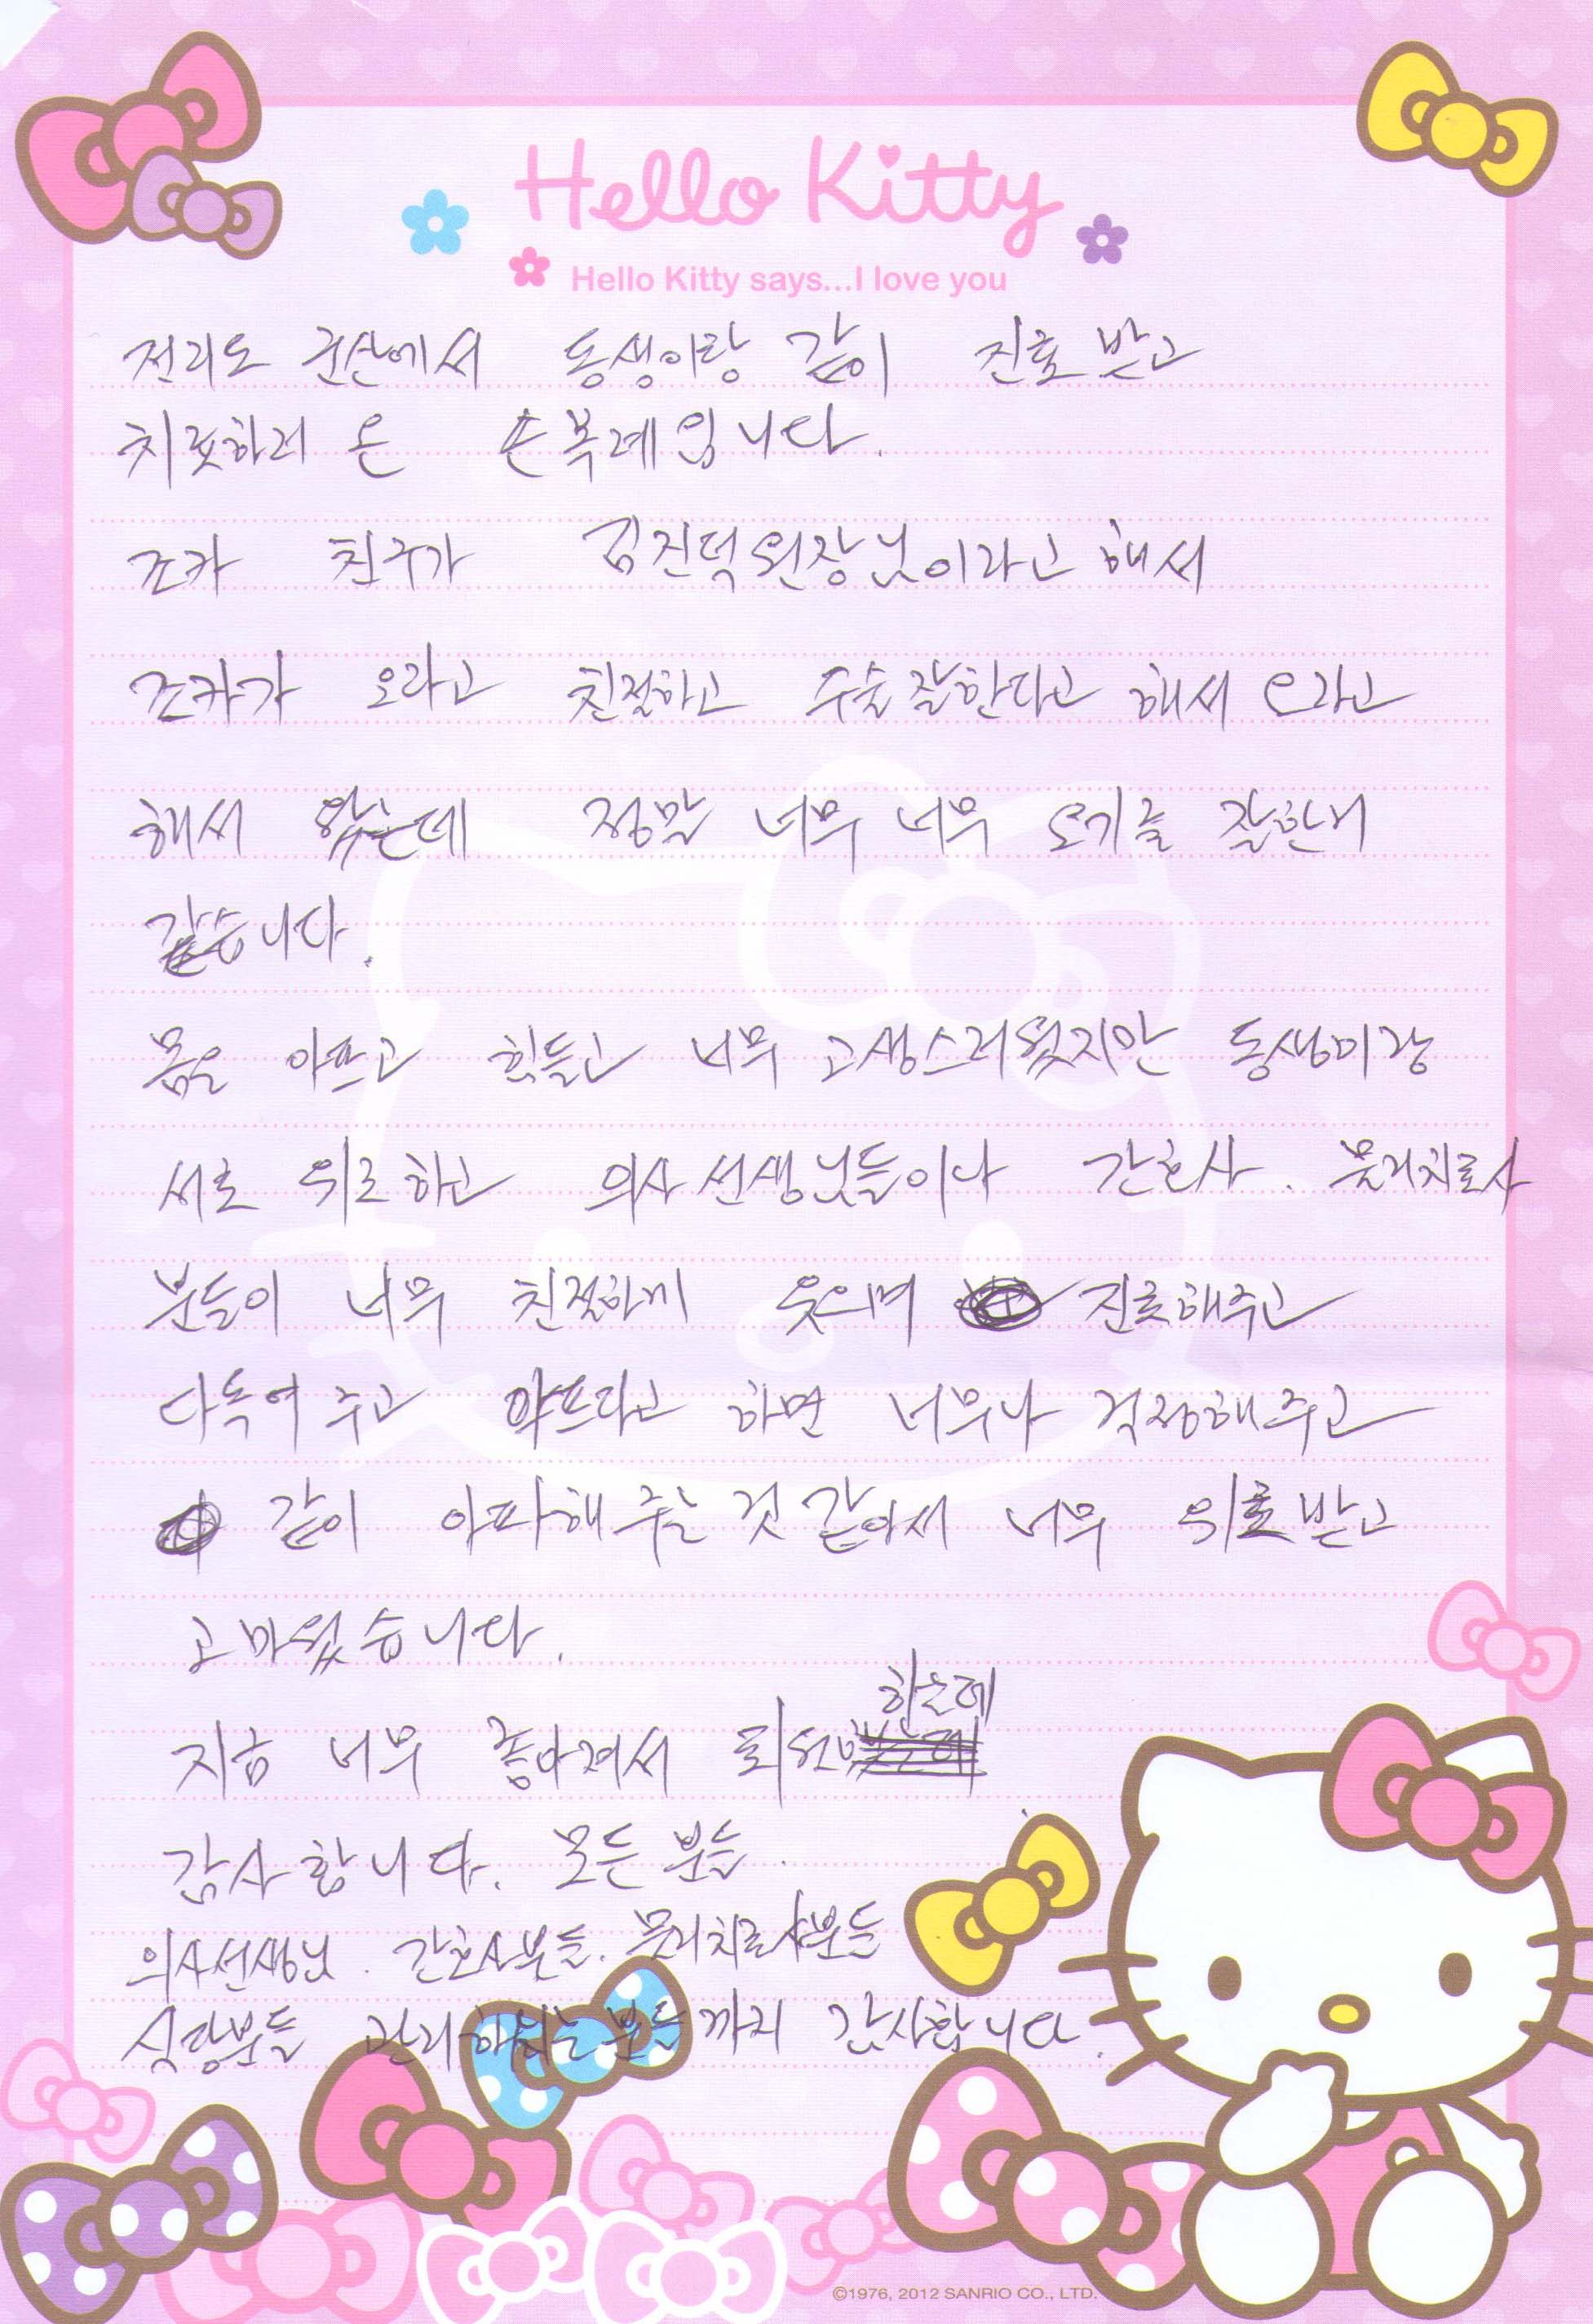 Hello Kitty
Hello Kitty says...I love you
전라도 군산에서 동생이랑 같이 진료 받고
치료하러 온 손복례입니다.
조카 친구가 김진덕원장님이라고 해서
조카가 오라고 친절하고 수술잘한다고 해서 오라고
해서 왔는데 정말 너무 너무 오기를 잘한거
같습니다.
몸은 아프고 힘들고 너무 고생스러웠지만 동생이랑
서로 위로하고 의사선생님들이나 간호사. 물리치료사
분들이 너무 친절하게 웃으며 진료해주고
다독여 주고 아프다고 하면 너무나 걱정해주고
같이 아파해 주는 것 같아서 너무 위로받고
고마웠습니다.
하는데
지금 너무 좋아져서 퇴원
감사합니다. 모든 분들.
의사선생님. 간호사분들. 물리치료사분들
식당분들 관리하시는 분들까지 감사합니다.
©1976, 2012 SANRIO CO., LTD.